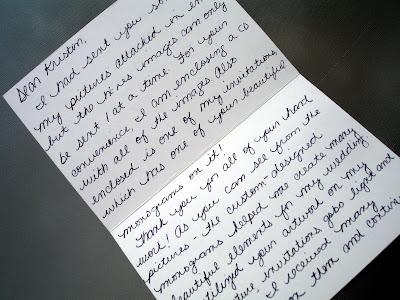 Dear Kristin,
I had sent you so
my pictures attached in em
but the hi-res images can only
be sent 1 at a time. For your
convenience, I am enclosing a CD
with all of the images. Also
enclosed is one of my invitations,
which has one of your beautiful
monograms on it!
Thank you for all of your hard
work! As you can see from the
pictures - the custom-designed
monograms helped me create many
beautiful elements for my wedding.
tilized your artwork on my
ture, invitations, gobo light and
I received many
n them and contin